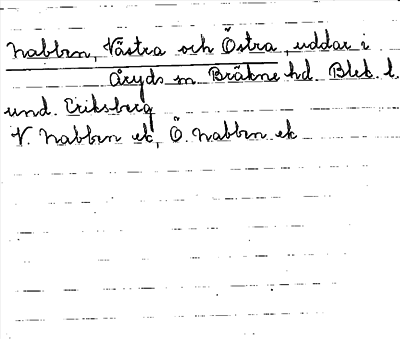 Nabben, Västra och Östra, uddar i
Åryds sn Bräkne hd. Blek. l.
und. Eriksberg
V. Nabben ek, Ö. Nabben ek